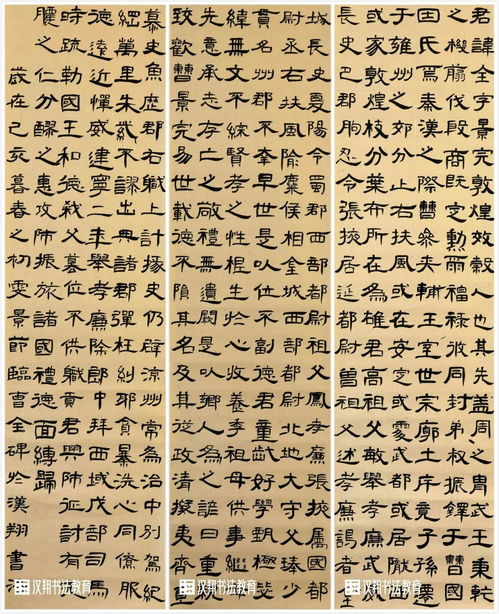 君諱全字景完敦煌效穀人也其先盖周之胄武王秉乾
之機翦伐殷商既定勳爾福祿攸同封弟叔振鐸于曹國
因氏焉秦漢之際曹參夾輔王室世宗廓土斥竟子孫遷
于雍州之郊分止右扶風或在安定或處武都或居隴西
或家敦煌枝分葉布所在為雄君高祖父敏舉孝廉武威
長史巴郡朐忍令張掖居延都尉曾祖父述孝廉謁者金
城長史夏陽令蜀郡西部都尉祖父鳳孝廉張掖屬國都
尉丞右扶風隃麋侯相金城西部都尉北地大守父琫少
貫名州郡不幸早世是以位不副德君童齔好學甄極毖
緯無文不綜賢孝之性根生於心收養季祖母供事繼母
先意承志存亡之敬禮無遺闕是以鄉人為之諺曰重親
致歡曹景完易世載德不隕其名及其從政清擬夷齊直
慕史魚歷郡右職上計掾史仍辟涼州常為治中別駕紀
綱萬里朱紫不謬出典諸郡彈枉糾邪貪暴洗心同僚服
德遠近憚威建寧二年舉孝廉除郎中拜西域戊部司馬
時疏勒國王和德弒父篡位不供職貢君興師征討有
膿之仁分醪之惠攻師振旅諸國禮德面縛歸
歲在己亥暮春之初雯景節臨曹全碑於漢翔書法
汉翔书法教育
汉翔书法教育
汉翔书法教育